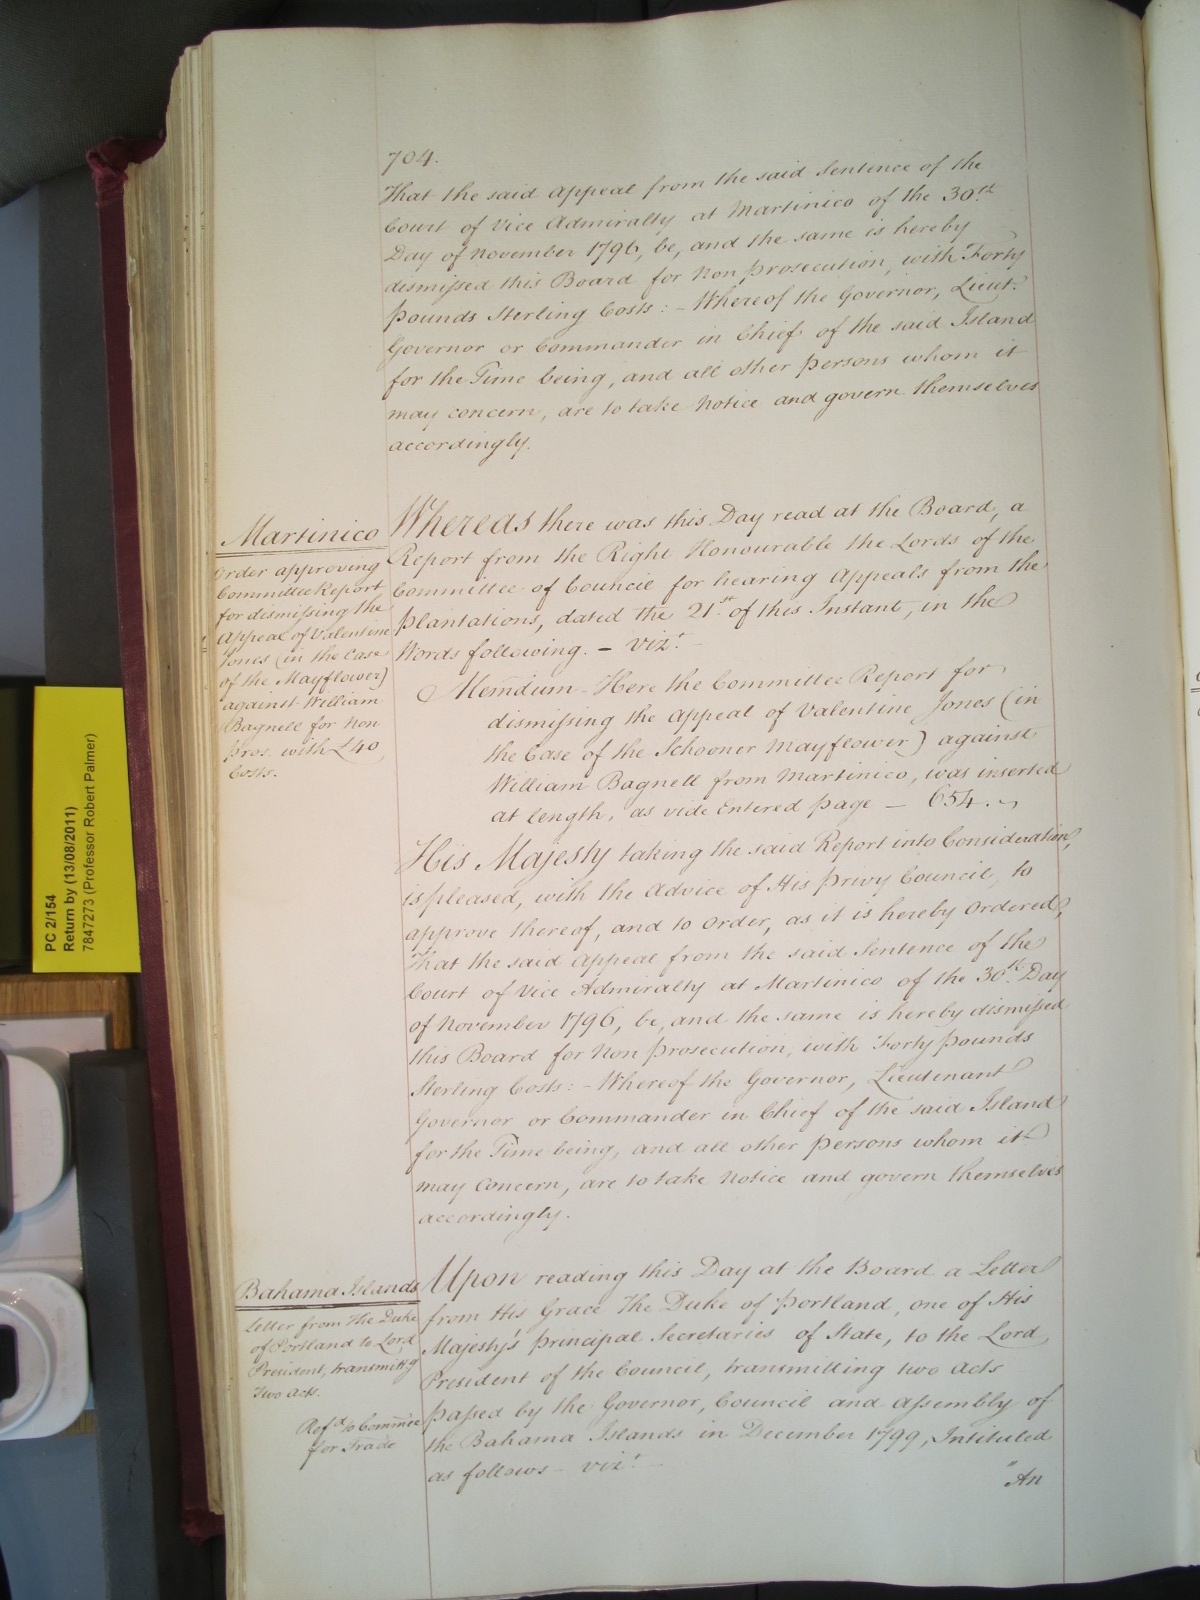 704.
That the said Appeal from the said Sentence of the
Court of Vice Admiralty at Martinico of the 30th
Day of November 1796, be, and the same is hereby
dismissed this Board for Non Prosecution, with Forty
Pounds Sterling Costs: – Whereof the Governor, Lieut.
Governor or Commander in Chief of the said Island
for the Time being, and all other Persons whom it
may concern, are to take Notice and govern themselves
accordingly.
Martinico
Order approving
Committee Report
for dismissing the
Appeal of Valentine
Jones (in the Case
of the Mayflower)
against William
Bagnell for Non
Pros. with £40
Costs.
Whereas there was this Day read at the Board, a
Report from the Right Honourable the Lords of the
Committee of Council for hearing Appeals from the
Plantations, dated the 21st of this Instant, in the
Words following. – Vizt. –
Memdum – Here the Committee Report for
dismissing the Appeal of Valentine Jones (in
the Case of the Schooner Mayflower) against
William Bagnell from Martinico, was inserted
at length, as vide Entered page – 654.
His Majesty taking the said Report into Consideration,
is pleased, with the Advice of His Privy Council, to
approve thereof, and to Order, as it is hereby Ordered,
That the said Appeal from the said Sentence of the
Court of Vice Admiralty at Martinico of the 30th Day
of November 1796, be, and the same is hereby dismissed
this Board for Non Prosecution, with Forty Pounds
Sterling Costs: – Whereof the Governor, Lieutenant
Governor or Commander in Chief of the said Island
for the Time being, and all other Persons whom it
may Concern, are to take Notice and govern themselves
accordingly.
Bahama Islands
Letter from the Duke
of Portland to Lord
President, transmittg
two Acts.
Refd to Commee
for Trade
Upon reading this Day at the Board a Letter
from His Grace The Duke of Portland, one of His
Majesty's Principal Secretaries of State, to the Lord
President of the Council, transmitting two Acts
passed by the Governor, Council and Assembly of
the Bahama Islands in December 1799, Intituled
as follows – Vizt. –
"An
PC 2/154
Return by (13/08/2011)
7847273 (Professor Robert Palmer)